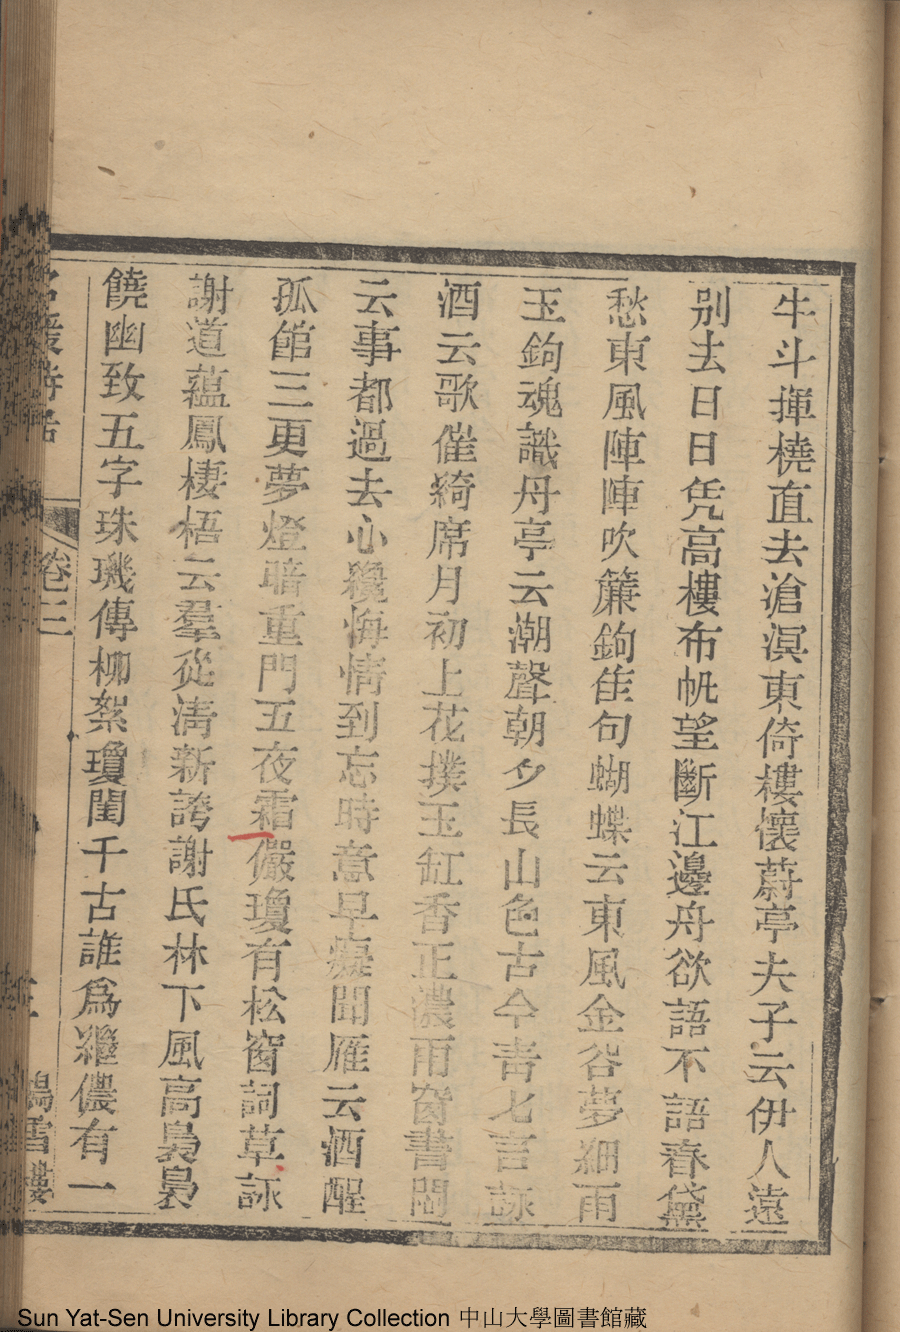 牛斗揮橈直去滄溟東倚樓懷蔚亭夫子云伊人遠
別去日日凭高樓布帆望斷江邊舟欲語不語春黛
愁東風陣陣吹簾鉤佳句蝴蝶云東風金谷夢細雨
玉鉤魂識舟亭云潮聲朝夕長山色古今青七言詠
酒云歌催綺席月初上花撲玉缸香正濃雨窗書悶
云事都過去心纔悔情到忘時意早癡聞雁云酒醒
孤館三更夢燈暗重門五夜霜儼瓊有松窗詞草詠
謝道蘊鳳棲梧云羣從淸新誇謝氏林下風高裊裊
饒幽致五字珠璣傳柳絮瓊閨千古誰爲繼儂有一
名媛詩話 卷三 鴻雪樓
Sun Yat-Sen University Library Collection 中山大學圖書館藏